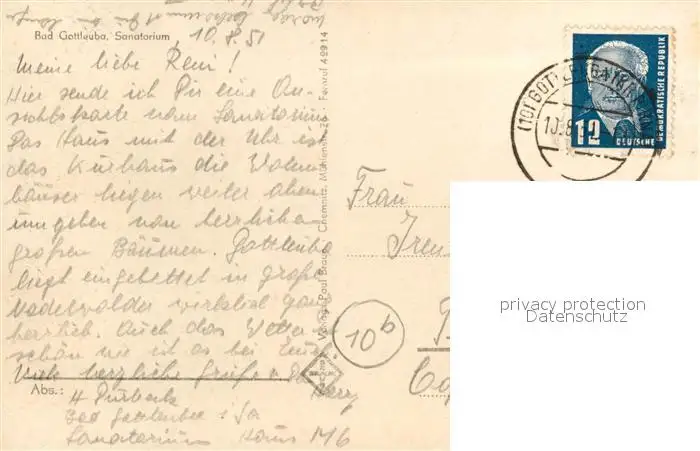 Bad Gottleuba, Sanatorium
10.8.51
Meine liebe Reni!
Hier sende ich Dir eine An-
sichtskarte vom Sanatorium
Das Haus mit der Uhr ist
das Kurhaus die Wohn-
häuser liegen weiter oben
umgeben von herrlichen
großen Bäumen. Gottleuba
liegt eingebettet in große
Nadelwälder wirklich ganz
herrlich. Auch das Wetter
schön wie ist es bei Euch
Viele herzliche Grüße
Abs.:
Bad Gottleuba i/Sa
Sanatorium Haus M6
Verlag Paul Braun Chemnitz, Fernruf 42914
(10) GOTTLEUBA
10.8
12
DEUTSCHE
DEMOKRATISCHE REPUBLIK
Frau
10b
privacy protection
Datenschutz